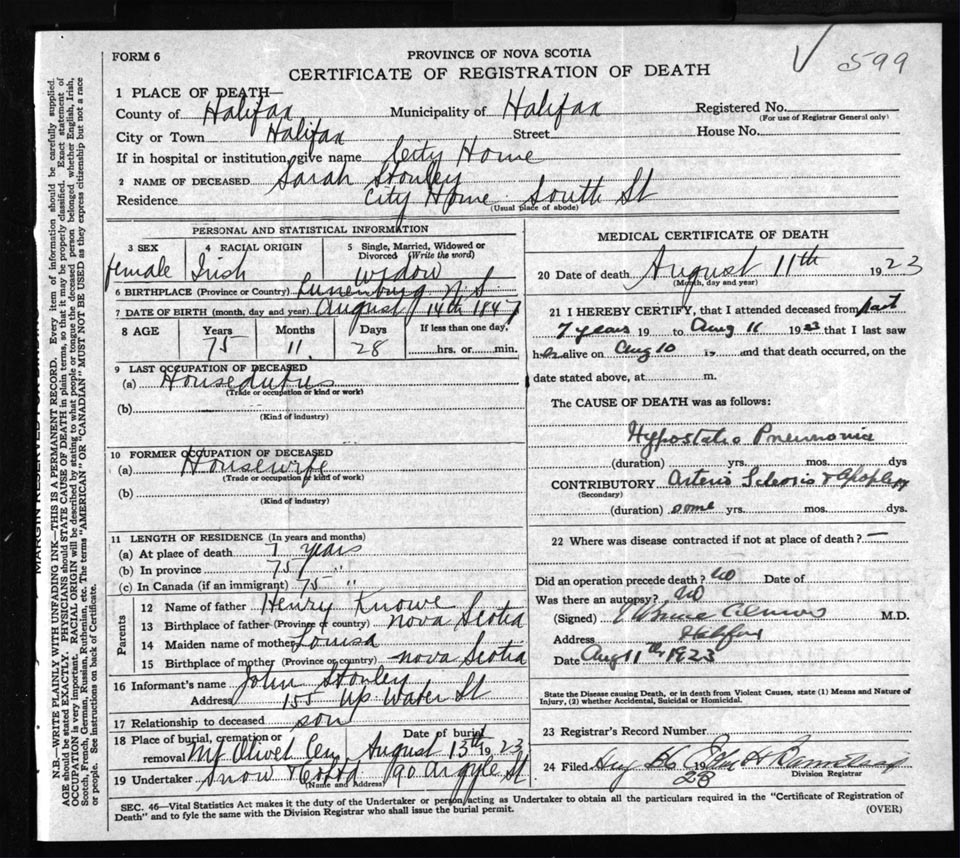 FORM 6
PROVINCE OF NOVA SCOTIA
CERTIFICATE OF REGISTRATION OF DEATH
599
1 PLACE OF DEATH—
County of Halifax Municipality of Halifax Registered No.
(For use of Registrar General only)
City or Town Halifax Street House No.
If in hospital or institution, give name City Home
2 NAME OF DECEASED Sarah Stonley
Residence City Home South St
(Usual place of abode)
PERSONAL AND STATISTICAL INFORMATION
3 SEX 4 RACIAL ORIGIN 5 Single, Married, Widowed or Divorced (Write the word)
female Irish widow
6 BIRTHPLACE (Province or Country) Lunenburg N S
7 DATE OF BIRTH (month, day and year) August 14th 1847
8 AGE Years Months Days If less than one day,
75 11 28 hrs. or min.
9 LAST OCCUPATION OF DECEASED
(a) Houseduties
(Trade or occupation or kind or work)
(b)
(Kind of industry)
10 FORMER OCCUPATION OF DECEASED
(a) Housewife
(Trade or occupation or kind of work)
(b)
(Kind of industry)
11 LENGTH OF RESIDENCE (In years and months)
(a) At place of death 7 years
(b) In province 75 "
(c) In Canada (if an immigrant) 75 "
Parents
12 Name of father Henry Knowe
13 Birthplace of father (Province or country) Nova Scotia
14 Maiden name of mother Louisa
15 Birthplace of mother (Province or country) Nova Scotia
16 Informant's name John Stonley
Address 155 Up Water St
17 Relationship to deceased son
18 Place of burial, cremation or removal Mt Olivet Cem Date of burial August 13th 1923
19 Undertaker Snow & Co Ltd 90 Argyle St
(Name and Address)
MEDICAL CERTIFICATE OF DEATH
20 Date of death August 11th 1923
(Month, day and year)
21 I HEREBY CERTIFY, that I attended deceased from past
7 years 19 to Aug 11 1923 that I last saw
her alive on Aug 10 19 and that death occurred, on the
date stated above, at m.
The CAUSE OF DEATH was as follows:
Hypostatic Pneumonia
(duration) yrs. mos. dys
CONTRIBUTORY Arterio Sclerosis & Apoplexy
(Secondary)
(duration) some yrs. mos. dys.
22 Where was disease contracted if not at place of death? —
Did an operation precede death? No Date of
Was there an autopsy? No
(Signed) M.D.
Address Halifax
Date Aug 11th 1923
State the Disease causing Death, or in death from Violent Causes, state (1) Means and Nature of
Injury, (2) whether Accidental, Suicidal or Homicidal.
23 Registrar's Record Number
24 Filed 19 23
Division Registrar
SEC. 46—Vital Statistics Act makes it the duty of the Undertaker or person acting as Undertaker to obtain all the particulars required in the "Certificate of Registration of
Death" and to fyle the same with the Division Registrar who shall issue the burial permit.
(OVER)
MARGIN RESERVED FOR BINDING
N.B.—WRITE PLAINLY WITH UNFADING INK—THIS IS A PERMANENT RECORD. Every item of information should be carefully supplied.
AGE should be stated EXACTLY. PHYSICIANS should STATE CAUSE OF DEATH in plain terms, so that it may be properly classified. Exact statement of
OCCUPATION is very important. RACIAL ORIGIN will be described by stating to what people or tongue the deceased person belonged whether English, Irish,
Scotch, French, German, Russian, Ruthenian, etc. The terms "AMERICAN" OR "CANADIAN" MUST NOT BE USED as they express citizenship but not a race
or people. See instructions on back of Certificate.